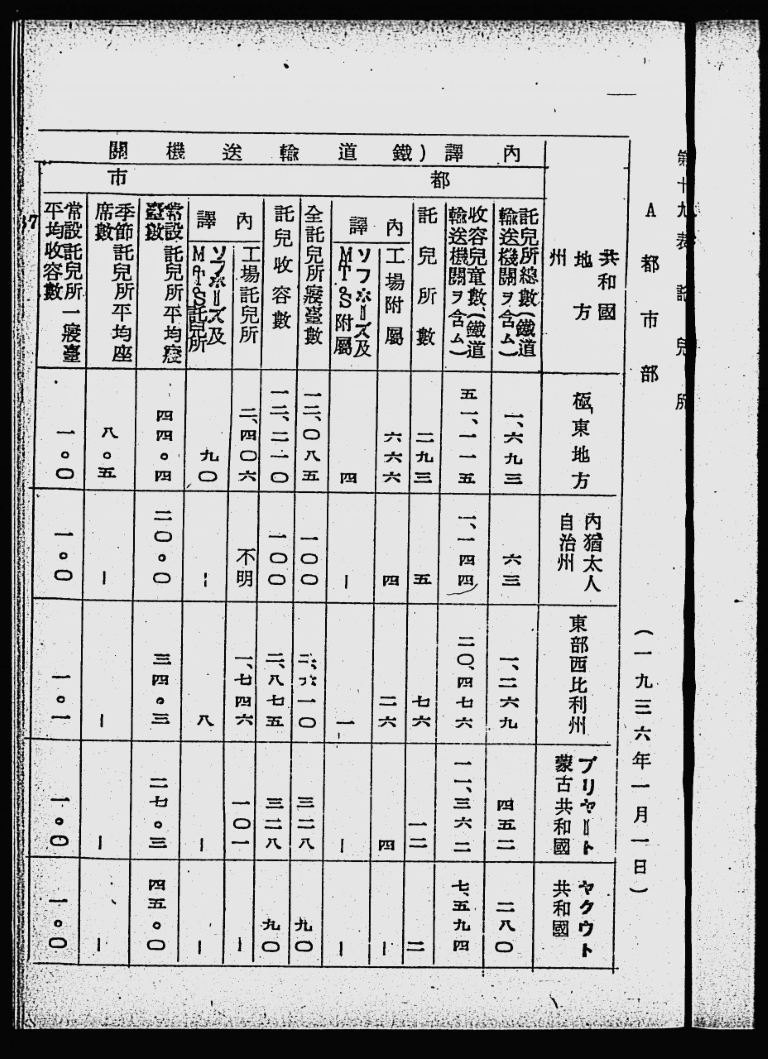 第十九表 託兒所
A 都市部
(一九三六年一月一日)
共和國
地方
州
極東地方
內猶太人
自治州
東部西比利州
ブリヤート
蒙古共和國
ヤクウト
共和國
內譯)鐵道輸送機關
都市
託兒所總數(鐵道
輸送機關ヲ含ム)
一、六九三
六三
一、二六九
四五二
二八〇
收容兒童數(鐵道
輸送機關ヲ含ム)
五一、一一五
一、一四四
二〇、四七六
一一、三六二
七、五九四
託兒所數
二九三
五
七六
一二
二
內譯
工場附屬
六六六
四
二六
四
―
ソフホーズ及
MTS附屬
四
―
一
―
―
全託兒所寢臺數
一二、〇八五
一〇〇
二、六一〇
三二八
九〇
託兒收容數
一二、二一〇
一〇〇
二、八七五
三二八
九〇
內譯
工場託兒所
二、四〇六
不明
一、七四六
一〇一
―
ソフホーズ及
MTS託兒所
九〇
―
八
―
―
常設託兒所平均寢
臺數
四四。四
二〇。〇
三四。三
二七。三
四五。〇
季節託兒所平均座
席數
八。五
―
―
―
―
常設託兒所一寢臺
平均收容數
一。〇
一。〇
一。一
一。〇
一。〇